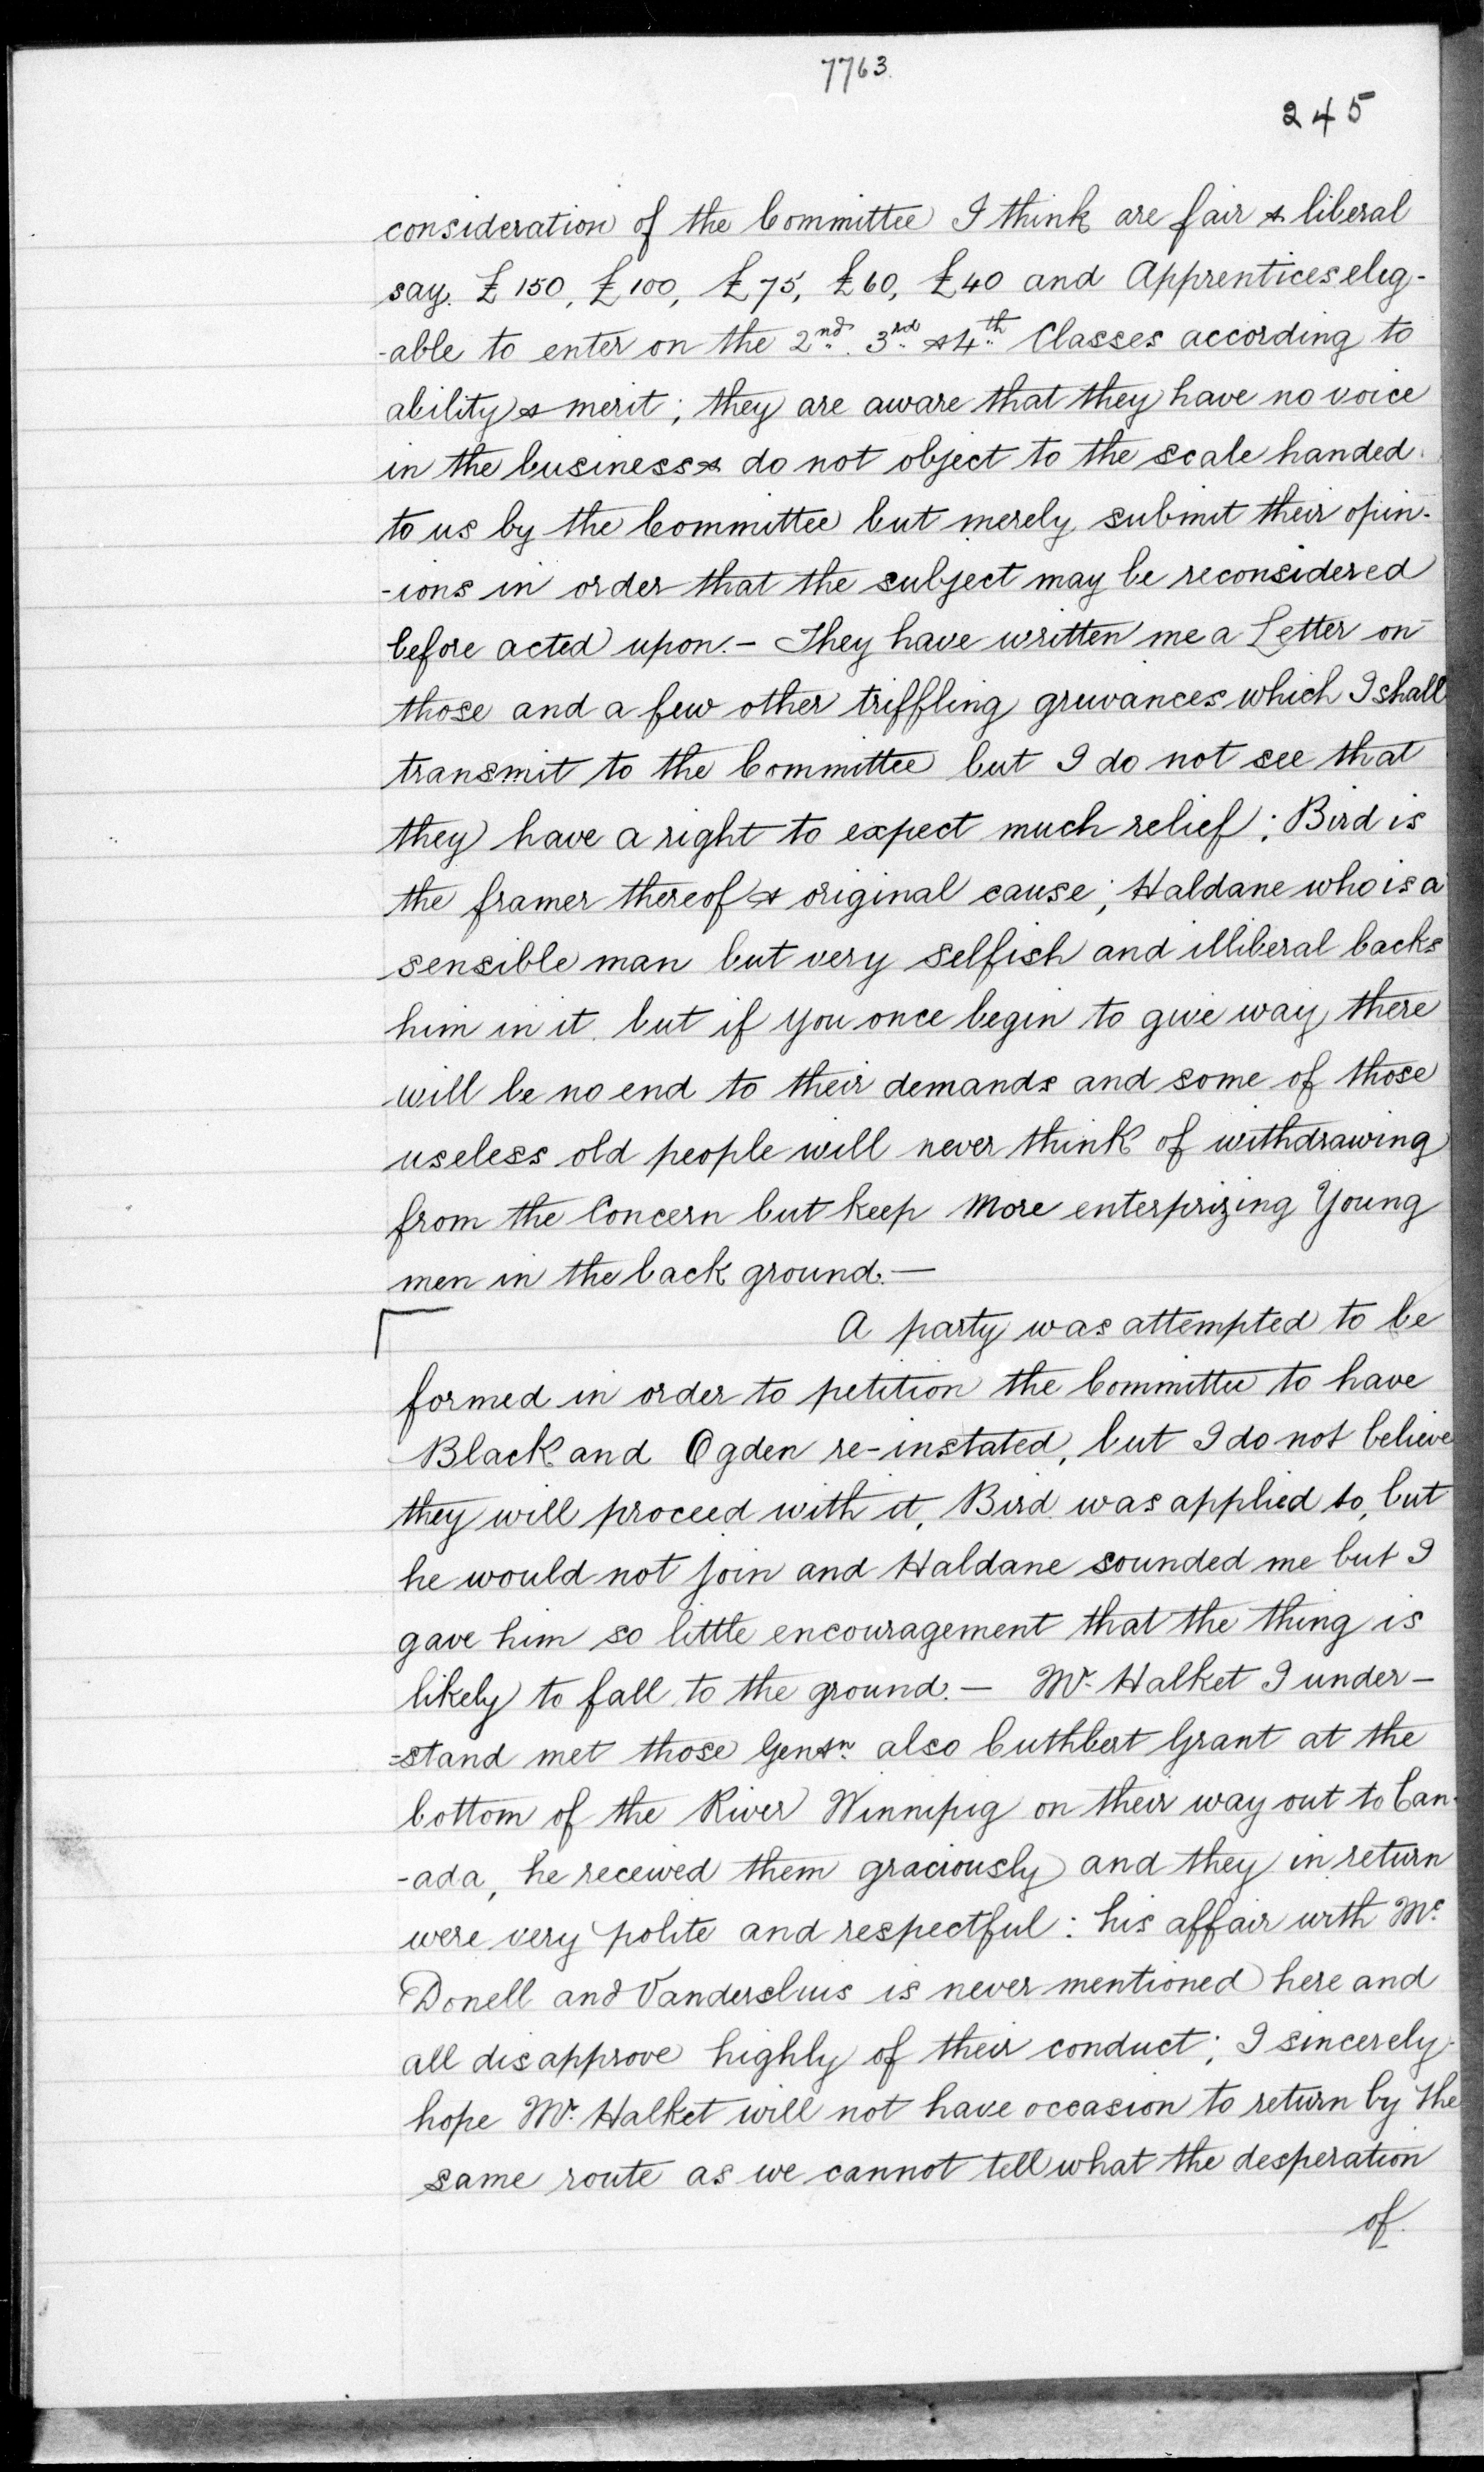 7763.
245
consideration of the Committee I think are fair & liberal
say. £150, £100, £75, £60, £40 and Apprentices elig-
-able to enter on the 2nd. 3rd & 4th Classes according to
ability & merit; they are aware that they have no voice
in the business & do not object to the scale handed
to us by the Committee but merely submit their opin-
-ions in order that the subject may be reconsidered
before acted upon.- They have written me a Letter on
those and a few other triffling grievances which I shall
transmit to the Committee but I do not see that
they have a right to expect much relief; Bird is
the framer thereof & original cause; Haldane who is a
sensible man but very selfish and illiberal backs
him in it. but if you once begin to give way there
will be no end to their demands and some of those
useless old people will never think of withdrawing
from the Concern but keep more enterprizing Young
men in the back ground.—
A party was attempted to be
formed in order to petition the Committee to have
Black and Ogden re-instated, but I do not believe
they will proceed with it, Bird was applied to, but
he would not join and Haldane sounded me but I
gave him so little encouragement that the thing is
likely to fall to the ground.— Mr. Halket I under-
=stand met those Gentn. also Cuthbert Grant at the
bottom of the River Winnipig on their way out to Can-
-ada, he received them graciously and they in return
were very polite and respectful: his affair with Mc.
Donell and Vandersluis is never mentioned here and
all disapprove highly of their conduct; I sincerely
hope Mr. Halket will not have occasion to return by the
same route as we cannot tell what the desperation
of.